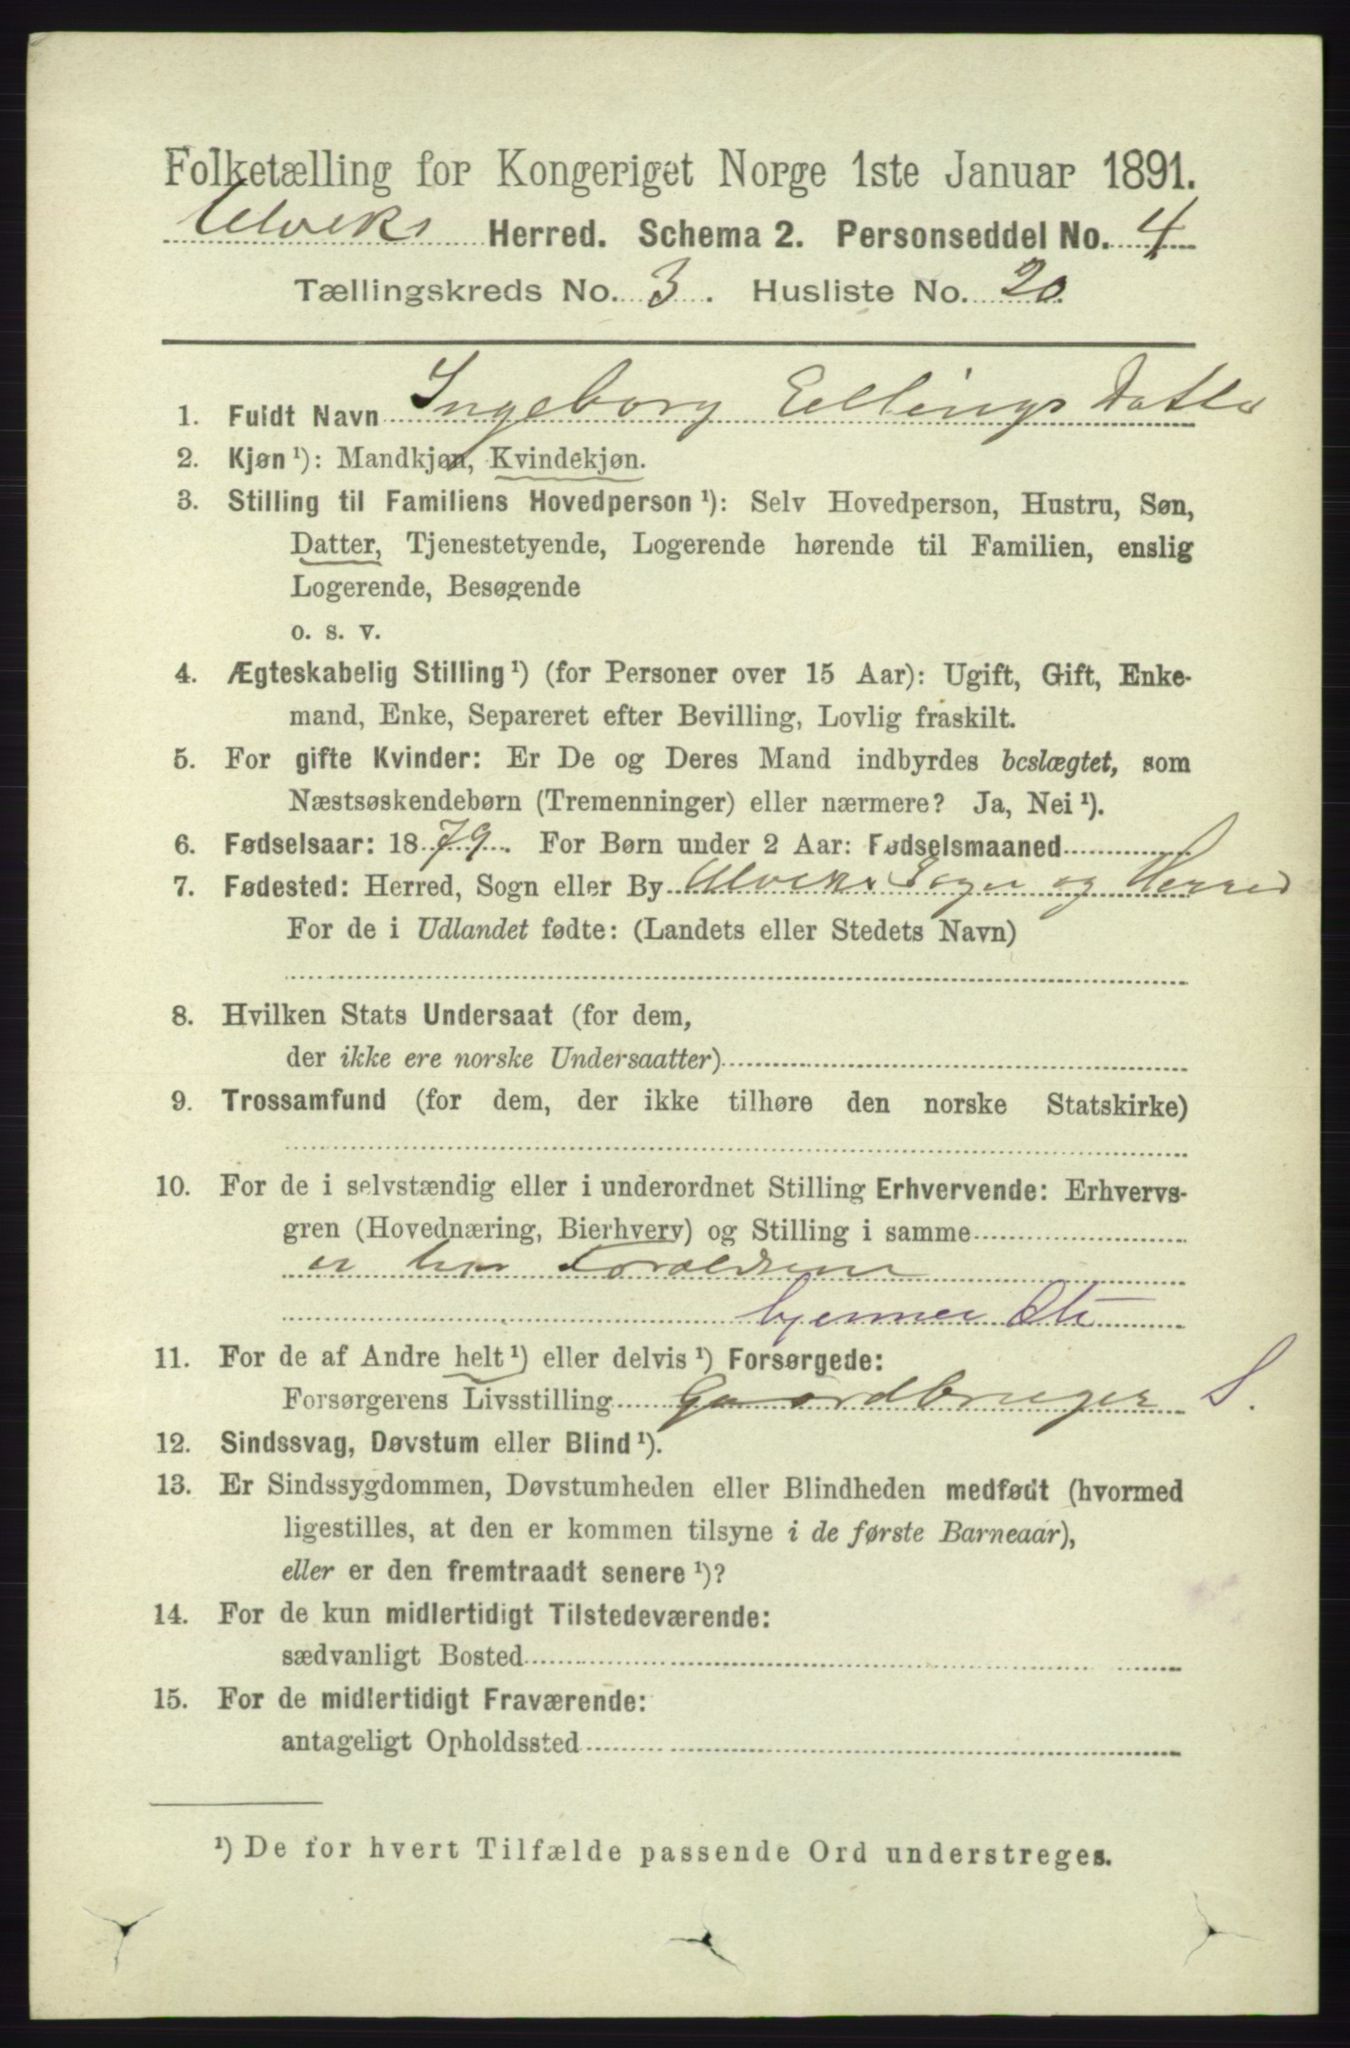 Folketælling for Kongeriget Norge 1ste Januar 1891.
Ulviks Herred. Schema 2. Personseddel No. 4
Tællingskreds No. 3. Husliste No. 20
1. Fuldt Navn Ingeborg Ellings Datter
2. Kjøn ¹): Mandkjøn, Kvindekjøn.
3. Stilling til Familiens Hovedperson ¹): Selv Hovedperson, Hustru, Søn,
Datter, Tjenestetyende, Logerende hørende til Familien, enslig
Logerende, Besøgende
o. s. v.
4. Ægteskabelig Stilling ¹) (for Personer over 15 Aar): Ugift, Gift, Enke-
mand, Enke, Separeret efter Bevilling, Lovlig fraskilt.
5. For gifte Kvinder: Er De og Deres Mand indbyrdes beslægtet, som
Næstsøskendebørn (Tremenninger) eller nærmere? Ja, Nei ¹).
6. Fødselsaar: 1879. For Børn under 2 Aar: Fødselsmaaned
7. Fødested: Herred, Sogn eller By Ulviks Sogn og Herred
For de i Udlandet fødte: (Landets eller Stedets Navn)
8. Hvilken Stats Undersaat (for dem,
der ikke ere norske Undersaatter)
9. Trossamfund (for dem, der ikke tilhøre den norske Statskirke)
10. For de i selvstændig eller i underordnet Stilling Erhvervende: Erhvervs-
gren (Hovednæring, Bierhverv) og Stilling i samme
er hos Foraldrene
hjemmev
11. For de af Andre helt ¹) eller delvis ¹) Forsørgede:
Forsørgerens Livsstilling Gaardbruger S.
12. Sindssvag, Døvstum eller Blind ¹).
13. Er Sindssygdommen, Døvstumheden eller Blindheden medfødt (hvormed
ligestilles, at den er kommen tilsyne i de første Barneaar),
eller er den fremtraadt senere ¹)?
14. For de kun midlertidigt Tilstedeværende:
sædvanligt Bosted
15. For de midlertidigt Fraværende:
antageligt Opholdssted
¹) De for hvert Tilfælde passende Ord understreges.